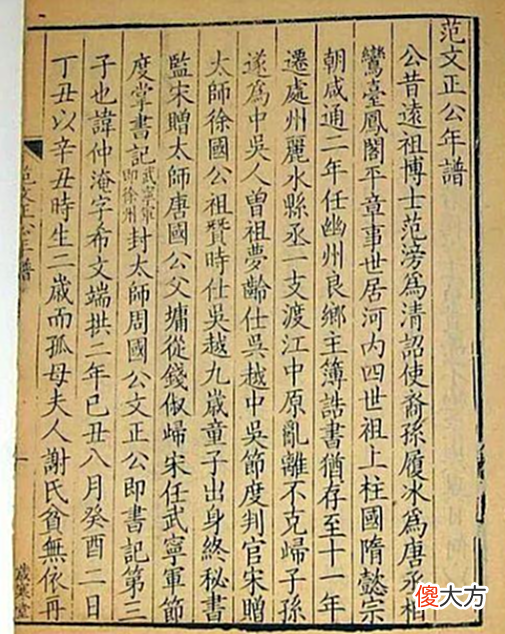 范文正公年譜
公昔遠祖博士范滂爲清詔使裔孫履冰爲唐丞相
鸞臺鳳閣平章事世居河内四世祖上柱國隋懿宗
朝咸通二年任幽州良鄉主簿誥書猶存至十一年
遷處州麗水縣丞一支渡江中原亂離不克歸子孫
遂爲中吳人曾祖夢齡仕吳越中吳節度判官宋贈
太師徐國公祖贊時仕吳越九歲童子出身終秘書
監宋贈太師唐國公父墉從錢俶歸宋任武寧軍節
度掌書記武寧軍即徐州封太師周國公文正公即書記第三
子也諱仲淹字希文端拱二年己丑八月癸酉二日
丁丑以辛丑時生二歲而孤母夫人謝氏貧無依再
范文正公年譜
一
歲寒堂
傻大方